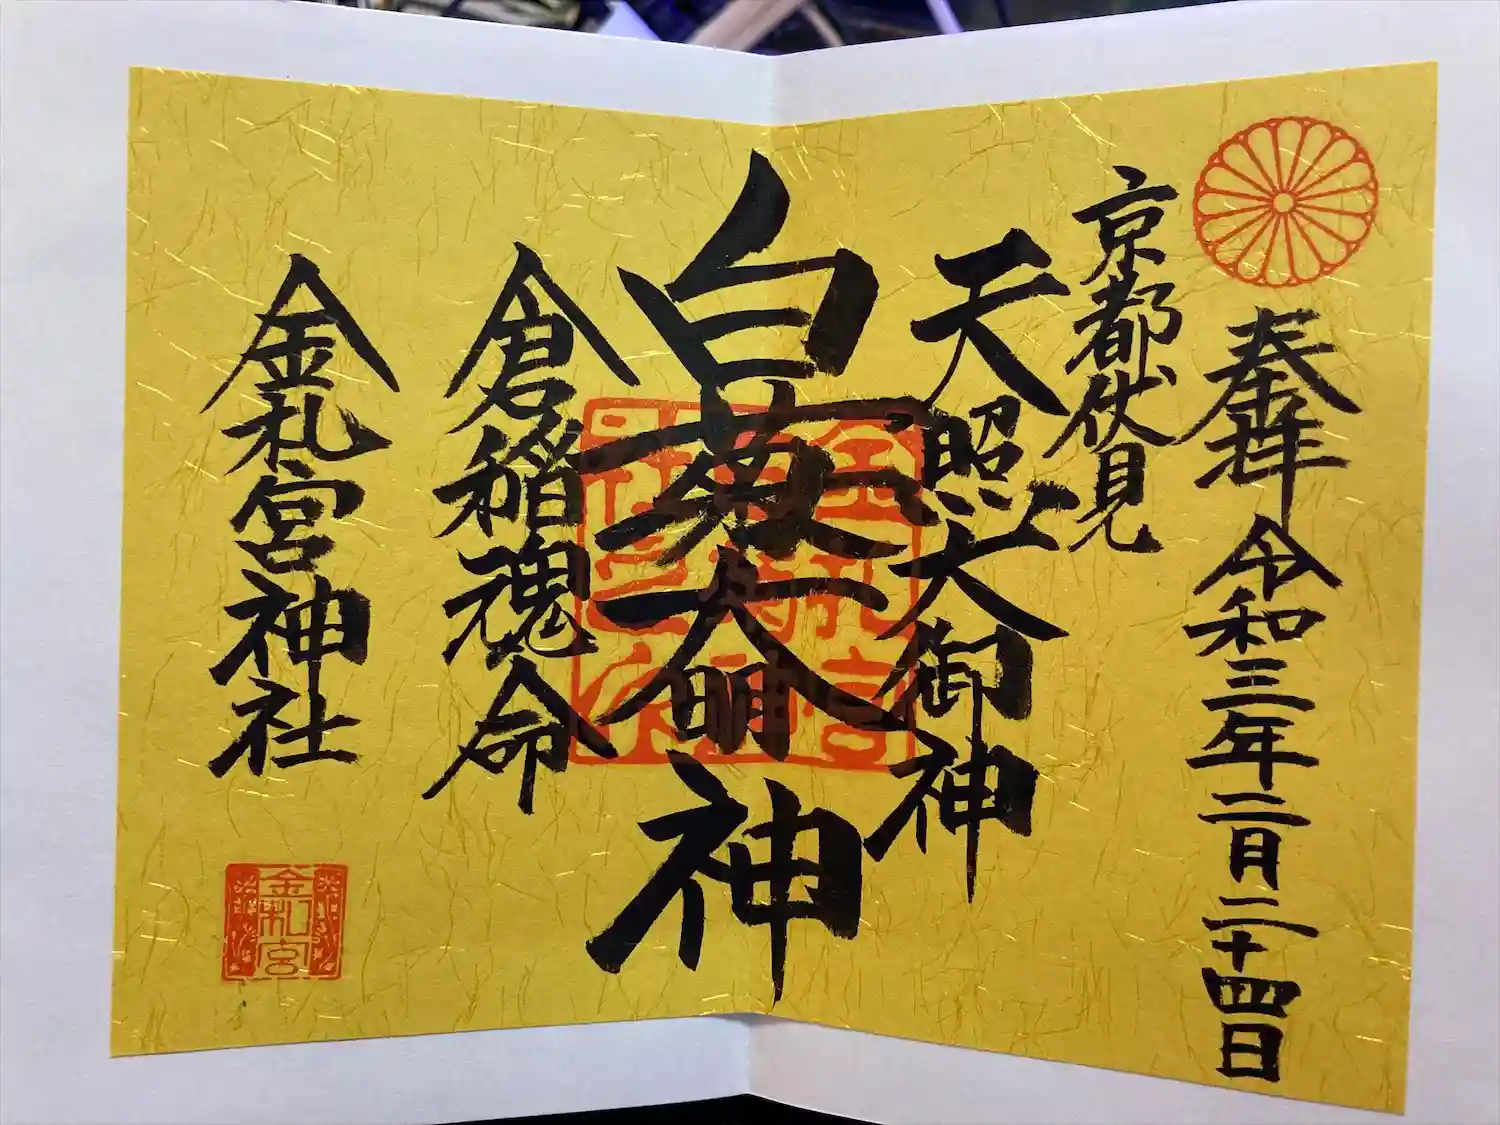 奉拝 令和三年二月二十四日
京都伏見
天照大御神
白菊大明神
倉稲魂命
金札宮神社
金札宮